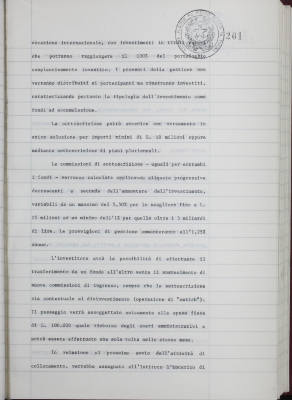 201
vocazione internazionale, con investimenti in titoli esteri
che potranno raggiungere il 100% del patrimonio
complessivamente investito. I proventi della gestione non
verranno distribuiti ai partecipanti ma rimarranno investiti,
caratterizzando pertanto la tipologia dell'investimento come
fondi ad accumulazione.
La sottoscrizione potrà avvenire con versamento in
unica soluzione per importi minimi di L. 10 milioni oppure
mediante sottoscrizione di piani pluriennali.
Le commissioni di sottoscrizione - uguali per entrambi
i fondi - verranno calcolate applicando aliquote progressive
decrescenti a seconda dell'ammontare dell'investimento,
variabili da un massimo del 5,50% per lo scaglione fino a L.
25 milioni ad un minimo dell'1% per quelle oltre i 3 miliardi
di lire. Le provvigioni di gestione ammonteranno all'1,25%
annuo.
L'investitore avrà la possibilità di effettuare il
trasferimento da un fondo all'altro senza il sostenimento di
nuove commissioni di ingresso, sempre che la sottoscrizione
sia contestuale al disinvestimento (operazione di "switch").
Il passaggio verrà assoggettato unicamente alla spesa fissa
di L. 100.000 quale rimborso degli oneri amministrativi e
potrà essere effettuato una sola volta nello stesso anno.
In relazione al prossimo avvio dell'attività di
collocamento, verrebbe assegnato all'Istituto l'incarico di